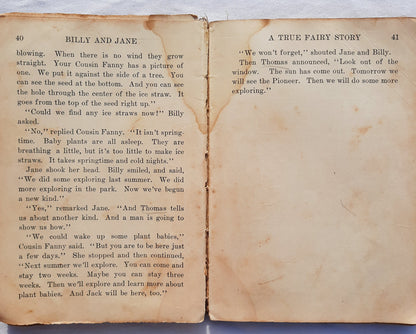 40 BILLY AND JANE
blowing. When there is no wind they grow
straight. Your Cousin Fanny has a picture of
one. We put it against the side of a tree. You
can see the seed at the bottom. And you can see
the hole through the center of the ice straw. It
goes from the top of the seed right up."
"Could we find any ice straws now?" Billy
asked.
"No," replied Cousin Fanny. "It isn't spring-
time. Baby plants are all asleep. They are
breathing a little, but it's too little to make ice
straws. It takes springtime and cold nights."
Jane shook her head. Billy smiled, and said,
"We did some exploring last summer. We did
more exploring in the park. Now we've begun
a new kind."
"Yes," remarked Jane. "And Thomas tells
us about another kind. And a man is going to
show us how."
"We could wake up some plant babies,"
Cousin Fanny said. "But you are to be here just
a few days." She stopped and then continued,
"Next summer we'll explore. You can come and
stay two weeks. Maybe you can stay three
weeks. Then we'll explore and learn more about
plant babies. And Jack will be here, too."
A TRUE FAIRY STORY 41
"We won't forget," shouted Jane and Billy.
Then Thomas announced, "Look out of the
window. The sun has come out. Tomorrow we
will see the Pioneer. Then we will do some more
exploring."